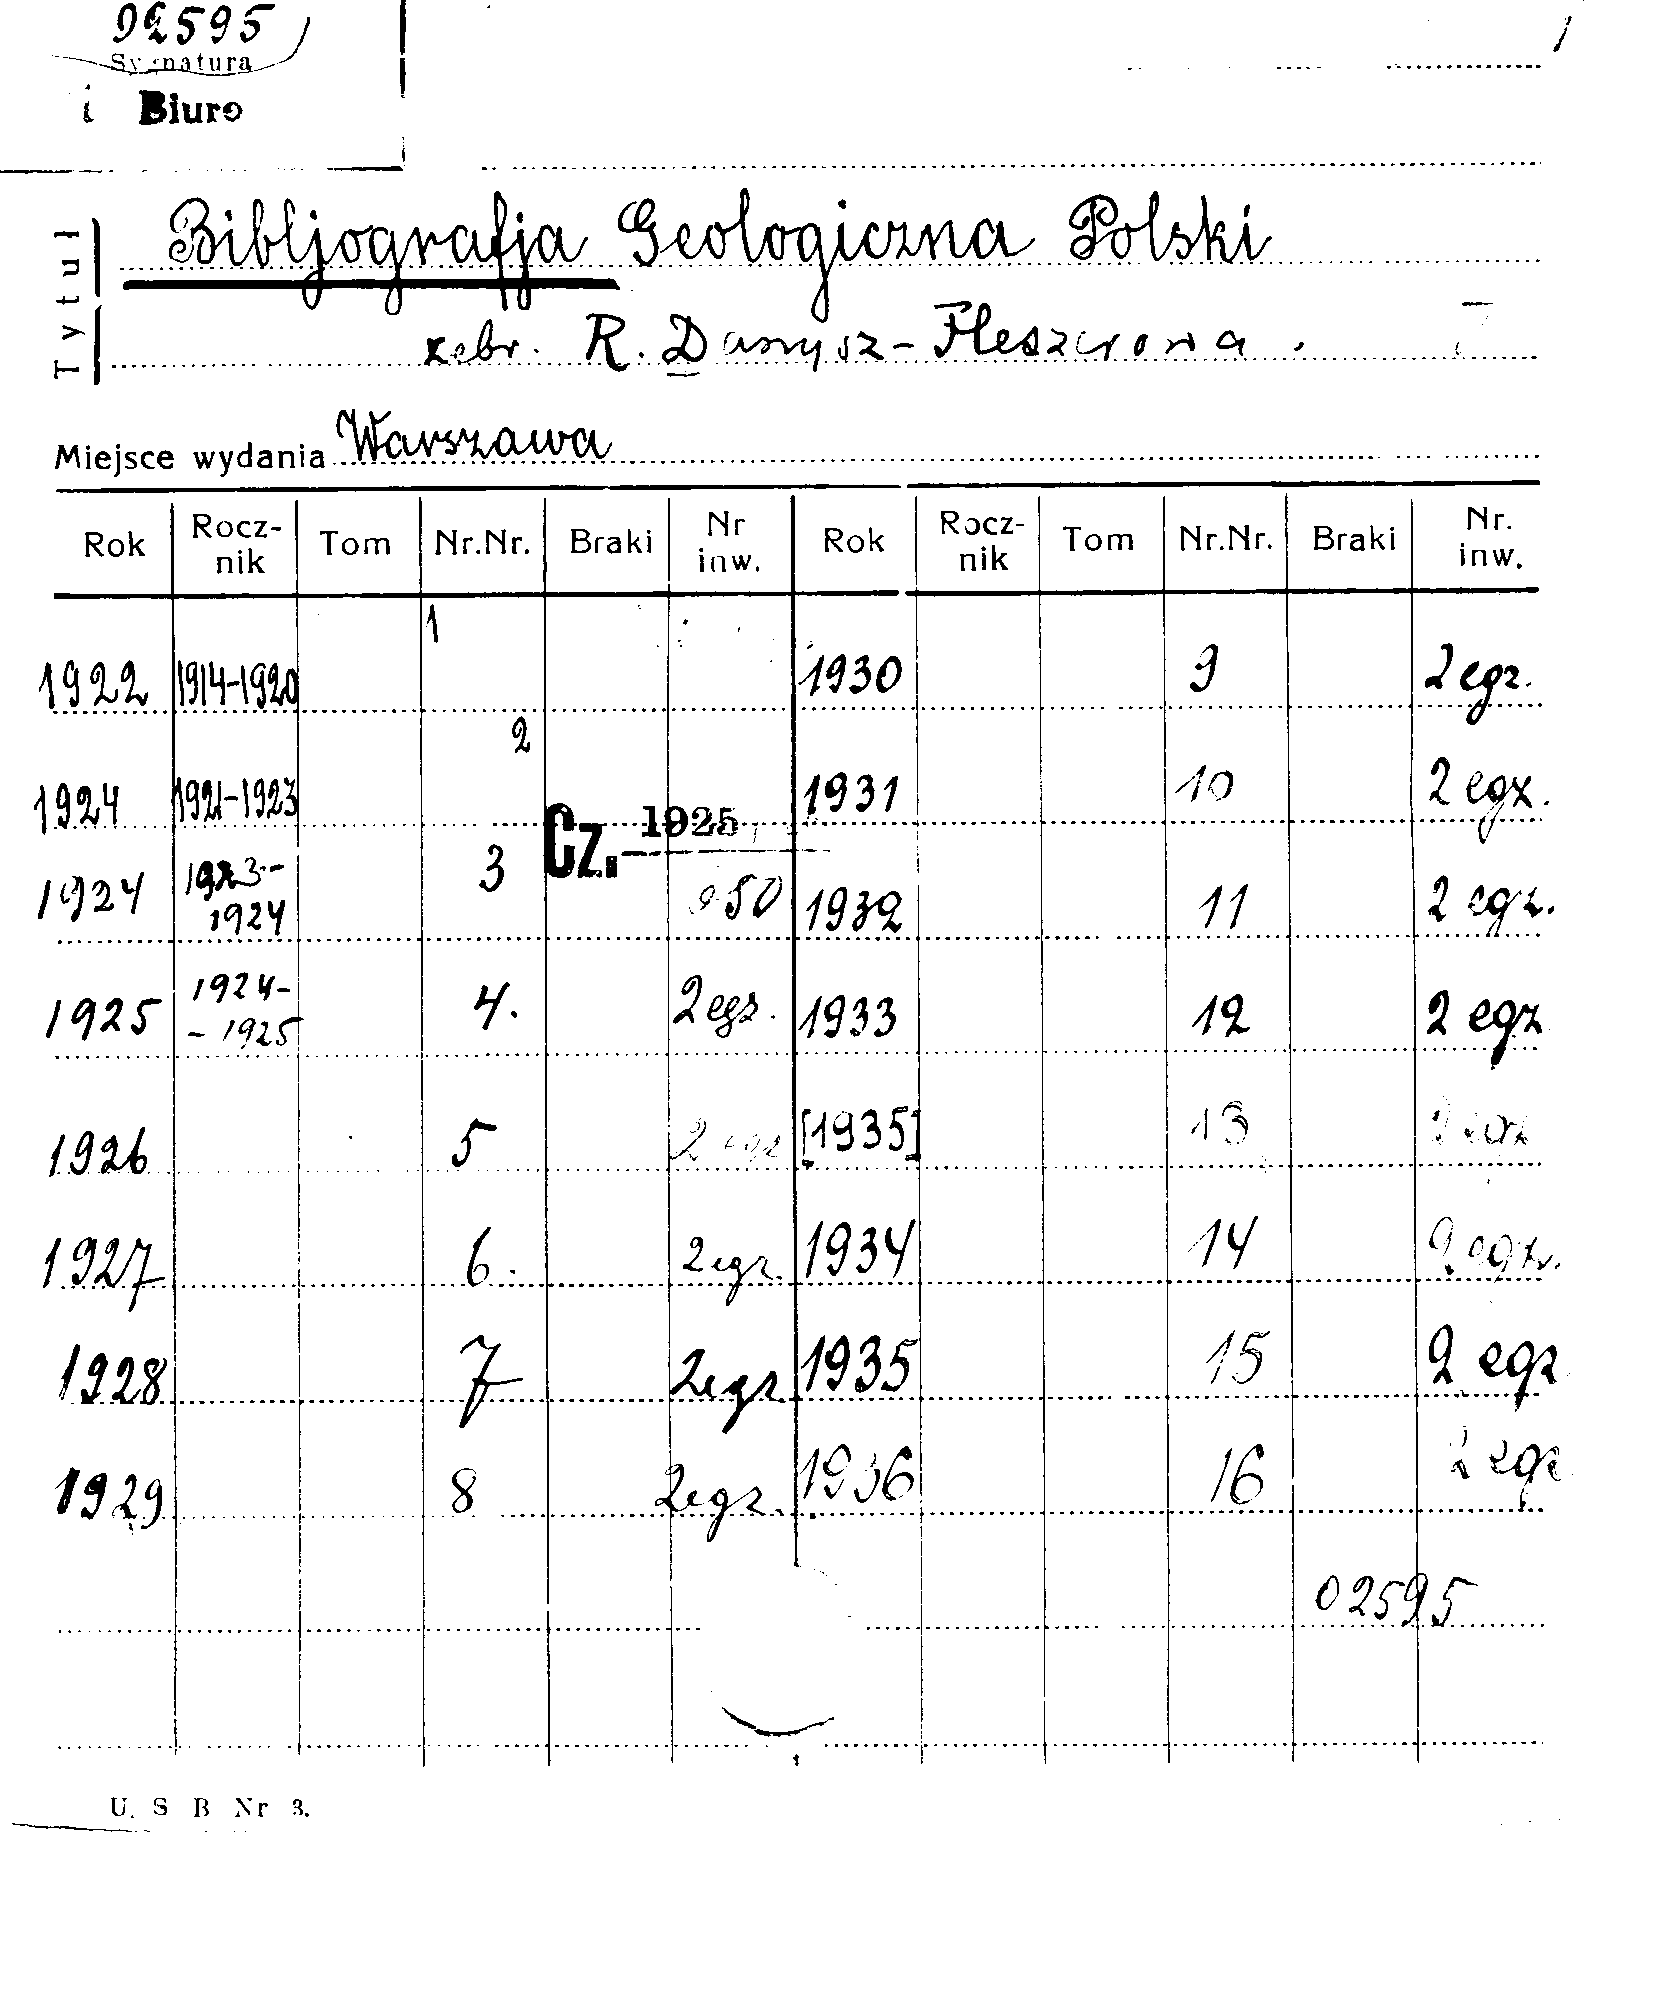 02595
Sygnatura
i Biuro
Tytuł
Bibljografja Geologiczna Polski
zebr. R. Danysz-Fleszerowa. I
Miejsce wydania Warszawa
Rok Rocz-nik Tom Nr.Nr. Braki Nr inw. Rok Rocz-nik Tom Nr.Nr. Braki Nr. inw.
1922 1914-1920 1 1930 9 2 egz.
1924 1921-1923 2 1931 10 2 egz.
Cz. 1925
1924 1923-1924 3 50 1932 11 2 egz.
1925 1924--1925 4. 2 egz. 1933 12 2 egz
1926 5 2 egz [1935] 13 2 egz
1927 6. 2 egz. 1934 14 2 egz.
1928 7 2 egz 1935 15 2 egz
1929 8 2 egz. 1936 16 2 egz
02595
U. S B Nr 3.